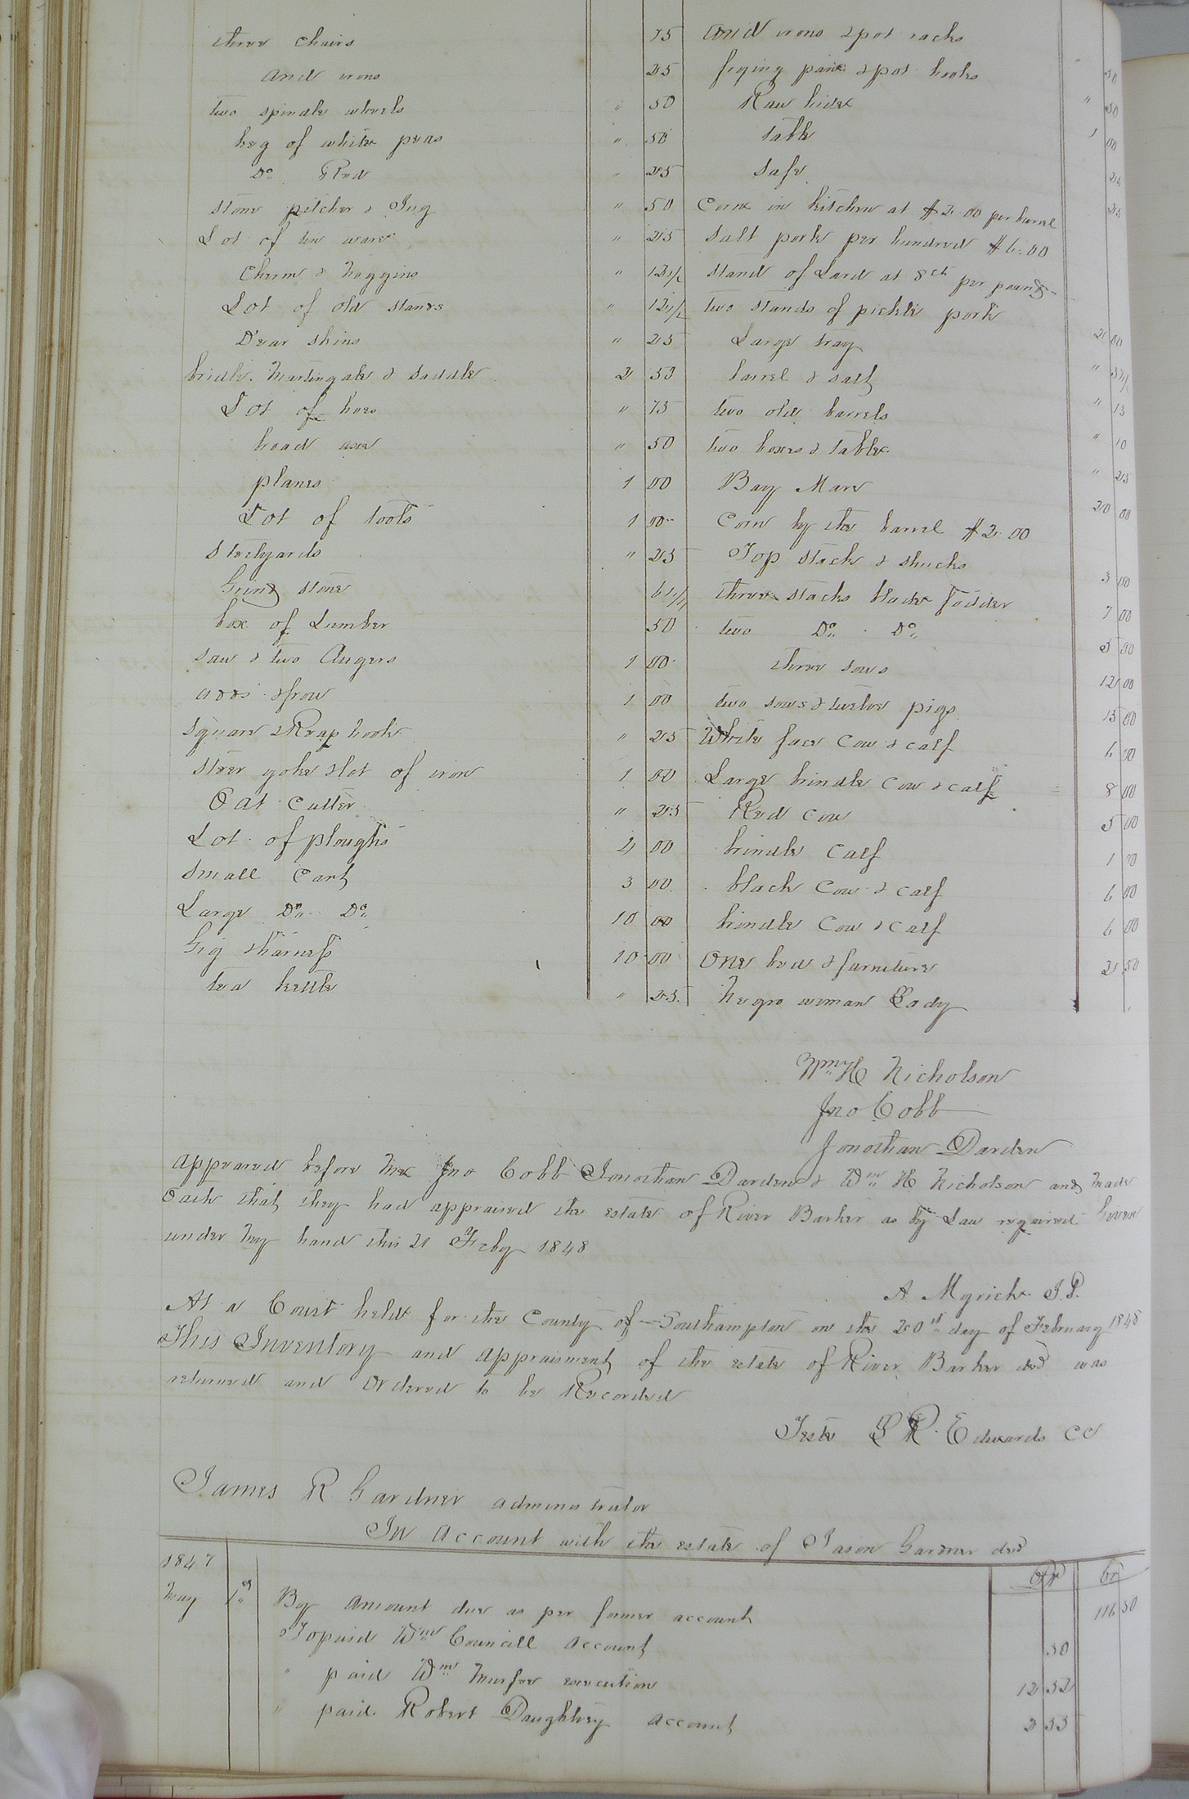 three chairs 75
And irons 25
two spindle wheels " 50
keg of white peas " 50
Do Red " 25
stone pitcher & Jug " 50
Lot of tin ware " 25
Churn & noggins " 12 1/2
Lot of old stands " 12 1/2
Dear skins " 25
bridle. Martingale & saddle 2 50
Lot of hoes " 75
broad axe " 50
planes 1 00
Lot of tools 1 00
Steelyards " 25
Grind stone 6 1/4
box of Lumber 50
saw & two Augers 1 00
adds & frow 1 00
square & Reap hook " 25
steer yoke & lot of iron 1 00
Oat Cutter " 25
Lot of ploughs 4 00
small Cart 3 00
Large Do Do 10 00
Gig & harness 10 00
tea kettle " 25
And irons & pot racks " 50
frying pan & pot hooks " 50
Raw hides 1 00
table 25
safe 25
Corn in kitchen at $2.00 per barrel
salt pork per hundred $6.00
stand of Lard at 8ct per pound
two stands of pickle pork 2 00
Large tray "
barrel & salt "
two old barrels " 10
two boxes & table " 25
Bay Mare 20 00
Corn by the barrel $2.00
Top stack & shucks 3 00
three stacks blade fodder 7 00
two Do Do 5 00
three sows 12 00
two sows & twelve pigs 15 00
White face Cow & calf 6 00
Large brindle Cow & calf 8 00
Red Cow 5 00
brindle Calf 1 00
black Cow & calf 6 00
brindle Cow & calf 6 00
One bed & furniture 2 50
Negro woman Eady
Wm H Nicholson
Jno Cobb
Jonathan Darden
Appeared before me Jno Cobb Jonathan Darden & Wm H Nicholson and made
Oath that they had appraised the estate of River Barker as by Law required Given
under my hand this 21 Feby 1848
A Myrick J.P.
At a Court held for the County of Southampton on the 20th day of February 1848
This Inventory and appraisment of the estate of River Barker decd was
returned and Ordered to be Recorded
Teste L R. Edwards CC
James R Gardner administrator
In Account with the estate of Jason Gardner decd
1847 Dr Cr
May 1st By amount due as per former account 116 50
To paid Wm Councill account 50
" paid Wm Murfee execution 12 52
" paid Robert Daughtrey account 2 33